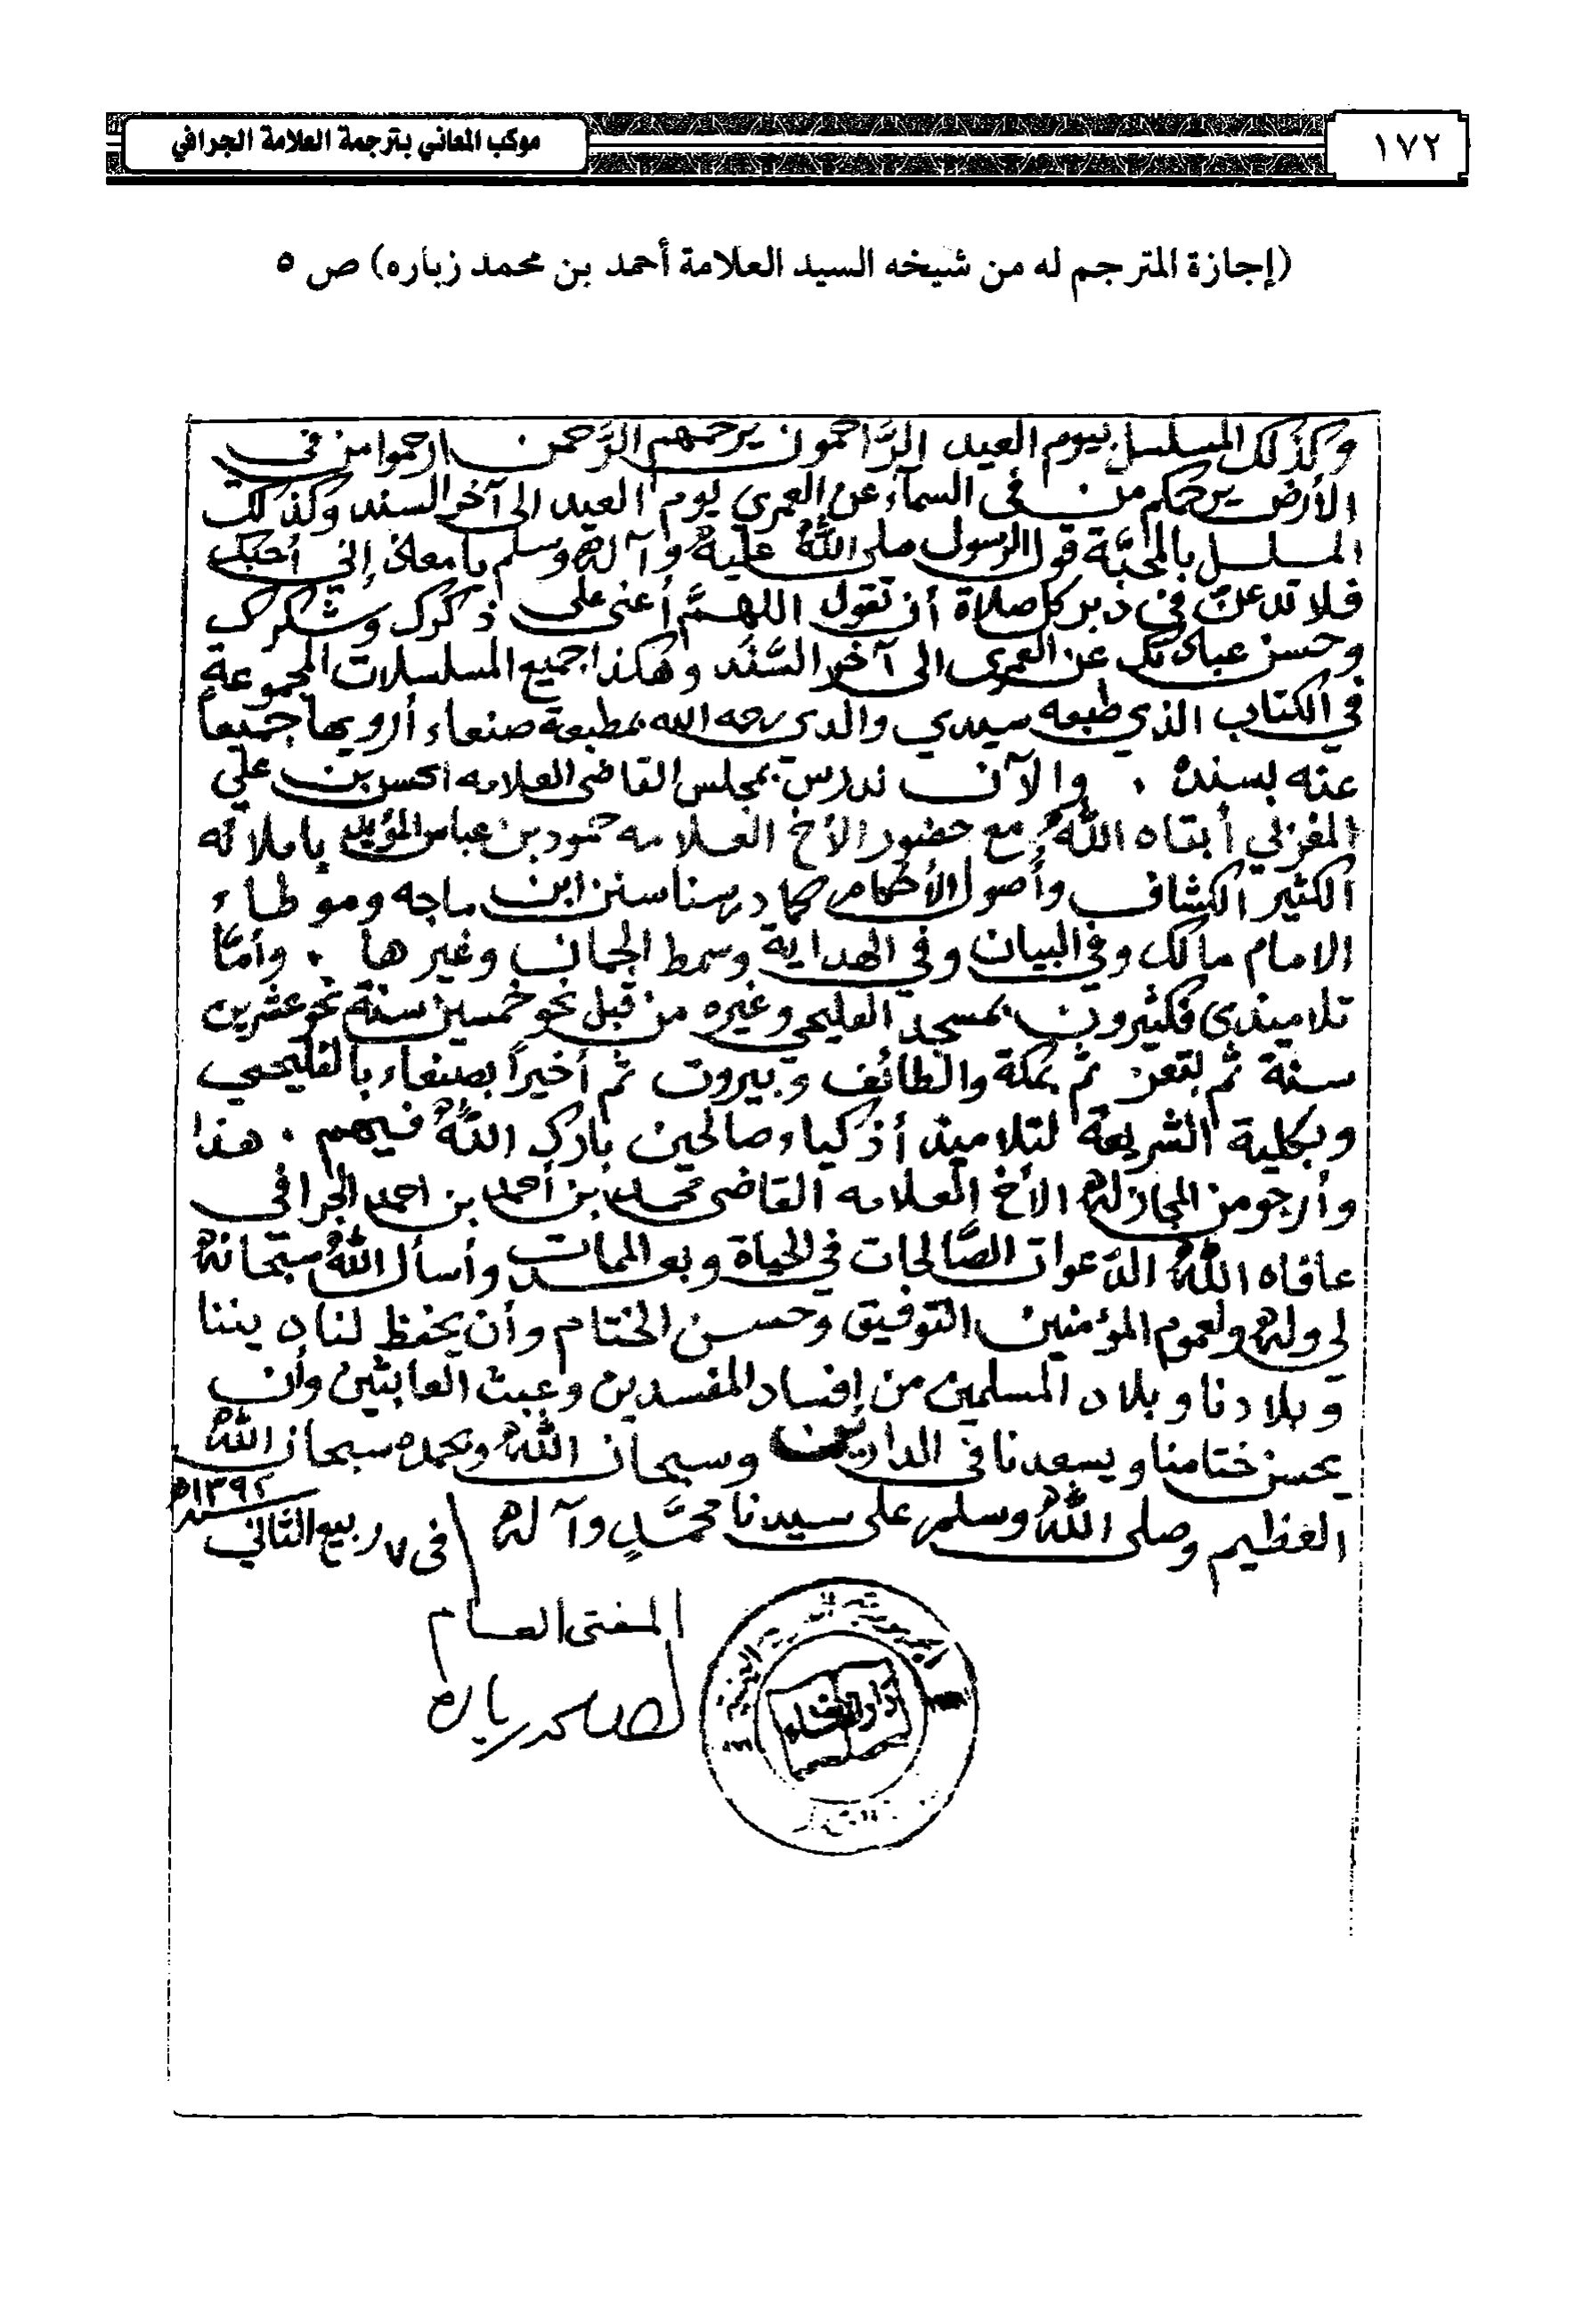 ١٧٢
موكب المعاني بترجمة العلامة الجرافي
(إجازة المترجم له من شيخه السيد العلامة أحمد بن محمد زباره) ص ٥
وكذلك المسلسل بيوم العيد الرَّاحمون يرحمهم الرَّحمن ارحموا من في
الأرض يرحمكم من في السمآء عن العمري يوم العيد الى آخر السند وكذلك
المسلسل بالمحبَّة قول الرسول صلى اللهُ عليه وآله وسلم يا معاذ إني أحبك
فلا تدعنَّ في دبر كل صلاة أن تقول اللهمَّ أعني على ذكرك وشكرك
وحسن عبادتك عن العمري الى آخر السَّنَد وهكذا جميع المسلسلات المجموعة
في الكتاب الذي طبعه سيدي والدي رحمه الله بمطبعة صنعاء أرويها جميعاً
عنه بسنده . والآن ندرس بمجلس القاضي العلامه الحسن بن علي
المغربي أبقاه اللهُ مع حضور الأخ العلامه حمود بن عباس المؤيد بإملائه
الكثير الكشاف وأصول الأحكام كما درسنا سنن ابن ماجه وموطاء
الامام مالك وفي البيان وفي الهداية وسمط الجمان وغيرها . وأمَّا
تلاميذي فكثيرون بمسجد الفليحي وغيره من قبل نحو خمسين سنة نحو عشرين
سنة ثم بتعز ثم بمكة والطائف وبيروت ثم أخيراً بصنعاء بالفليحي
وبكلية الشريعة لتلاميذ أذكياء صالحين بارك اللهُ فيهم . هذا
وأرجو من المجاز له الأخ العلامه القاضي محمد بن أحمد بن احمد الجرافي
عافاه اللهُ الدَّعوات الصَّالحات في الحياة وبعد الممات وأسأل اللهُ سبحانه
لي وله ولعموم المؤمنين التوفيق وحسن الختام وأن يحفظ لنا ديننا
وبلادنا وبلاد المسلمين من إفساد المفسدين وعبث العابثين وأن
يحسن ختامنا ويسعدنا في الدارين وسبحان اللهُ وبحمده سبحان اللهُ
العظيم وصلى اللهُ وسلم على سيدنا محمَّدٍ وآله في ٧ ربيع الثاني
سنة ١٣٩٢هـ
المفتي العام